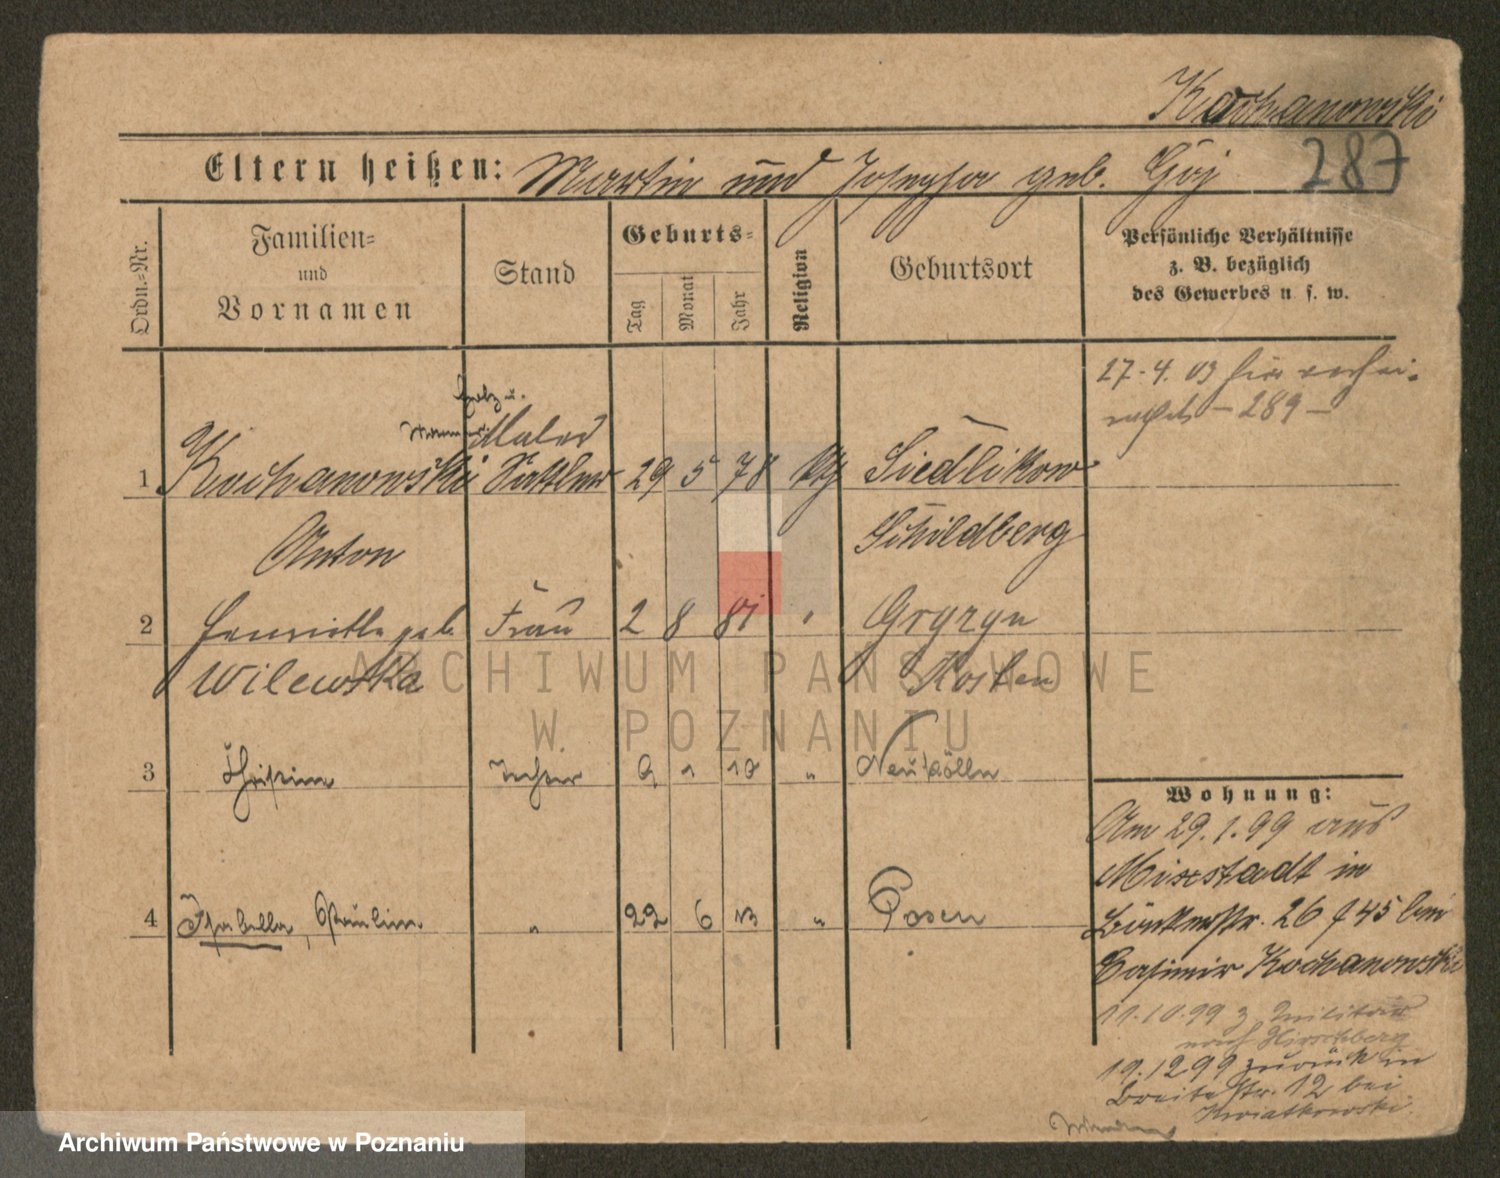 Kochanowski
287
Eltern heißen: Martin und Josepha geb. Goj
Ordn.=Nr.
Familien=
und
Vornamen
Stand
Geburts=
Tag
Monat
Jahr
Religion
Geburtsort
Persönliche Verhältnisse
z. B. bezüglich
des Gewerbes u s. w.
27.4.03 hier verhei-
rathet - 289 -
Maler
1 Kochanowski Sattler 29 5 78 Siedlikow
Anton Schildberg
2 Henriette geb. Frau 2 8 81 " Gryzyn
Wilewska Kosten
3 Christine Tochter 9 1 10 " Neukölln
4 Isabella, Paulina " 22 6 13 " Posen
Wohnung:
Am 29.1.99 aus
Mixstadt in
Bäckerstr. 26 bei
Casimir Kochanowski
11.10.99 z. Militär
nach Hirschberg
19.12 99 zurück in
Breitestr. 12 bei
Kwiatkowski
ARCHIWUM PAŃSTWOWE
W POZNANIU
Archiwum Państwowe w Poznaniu